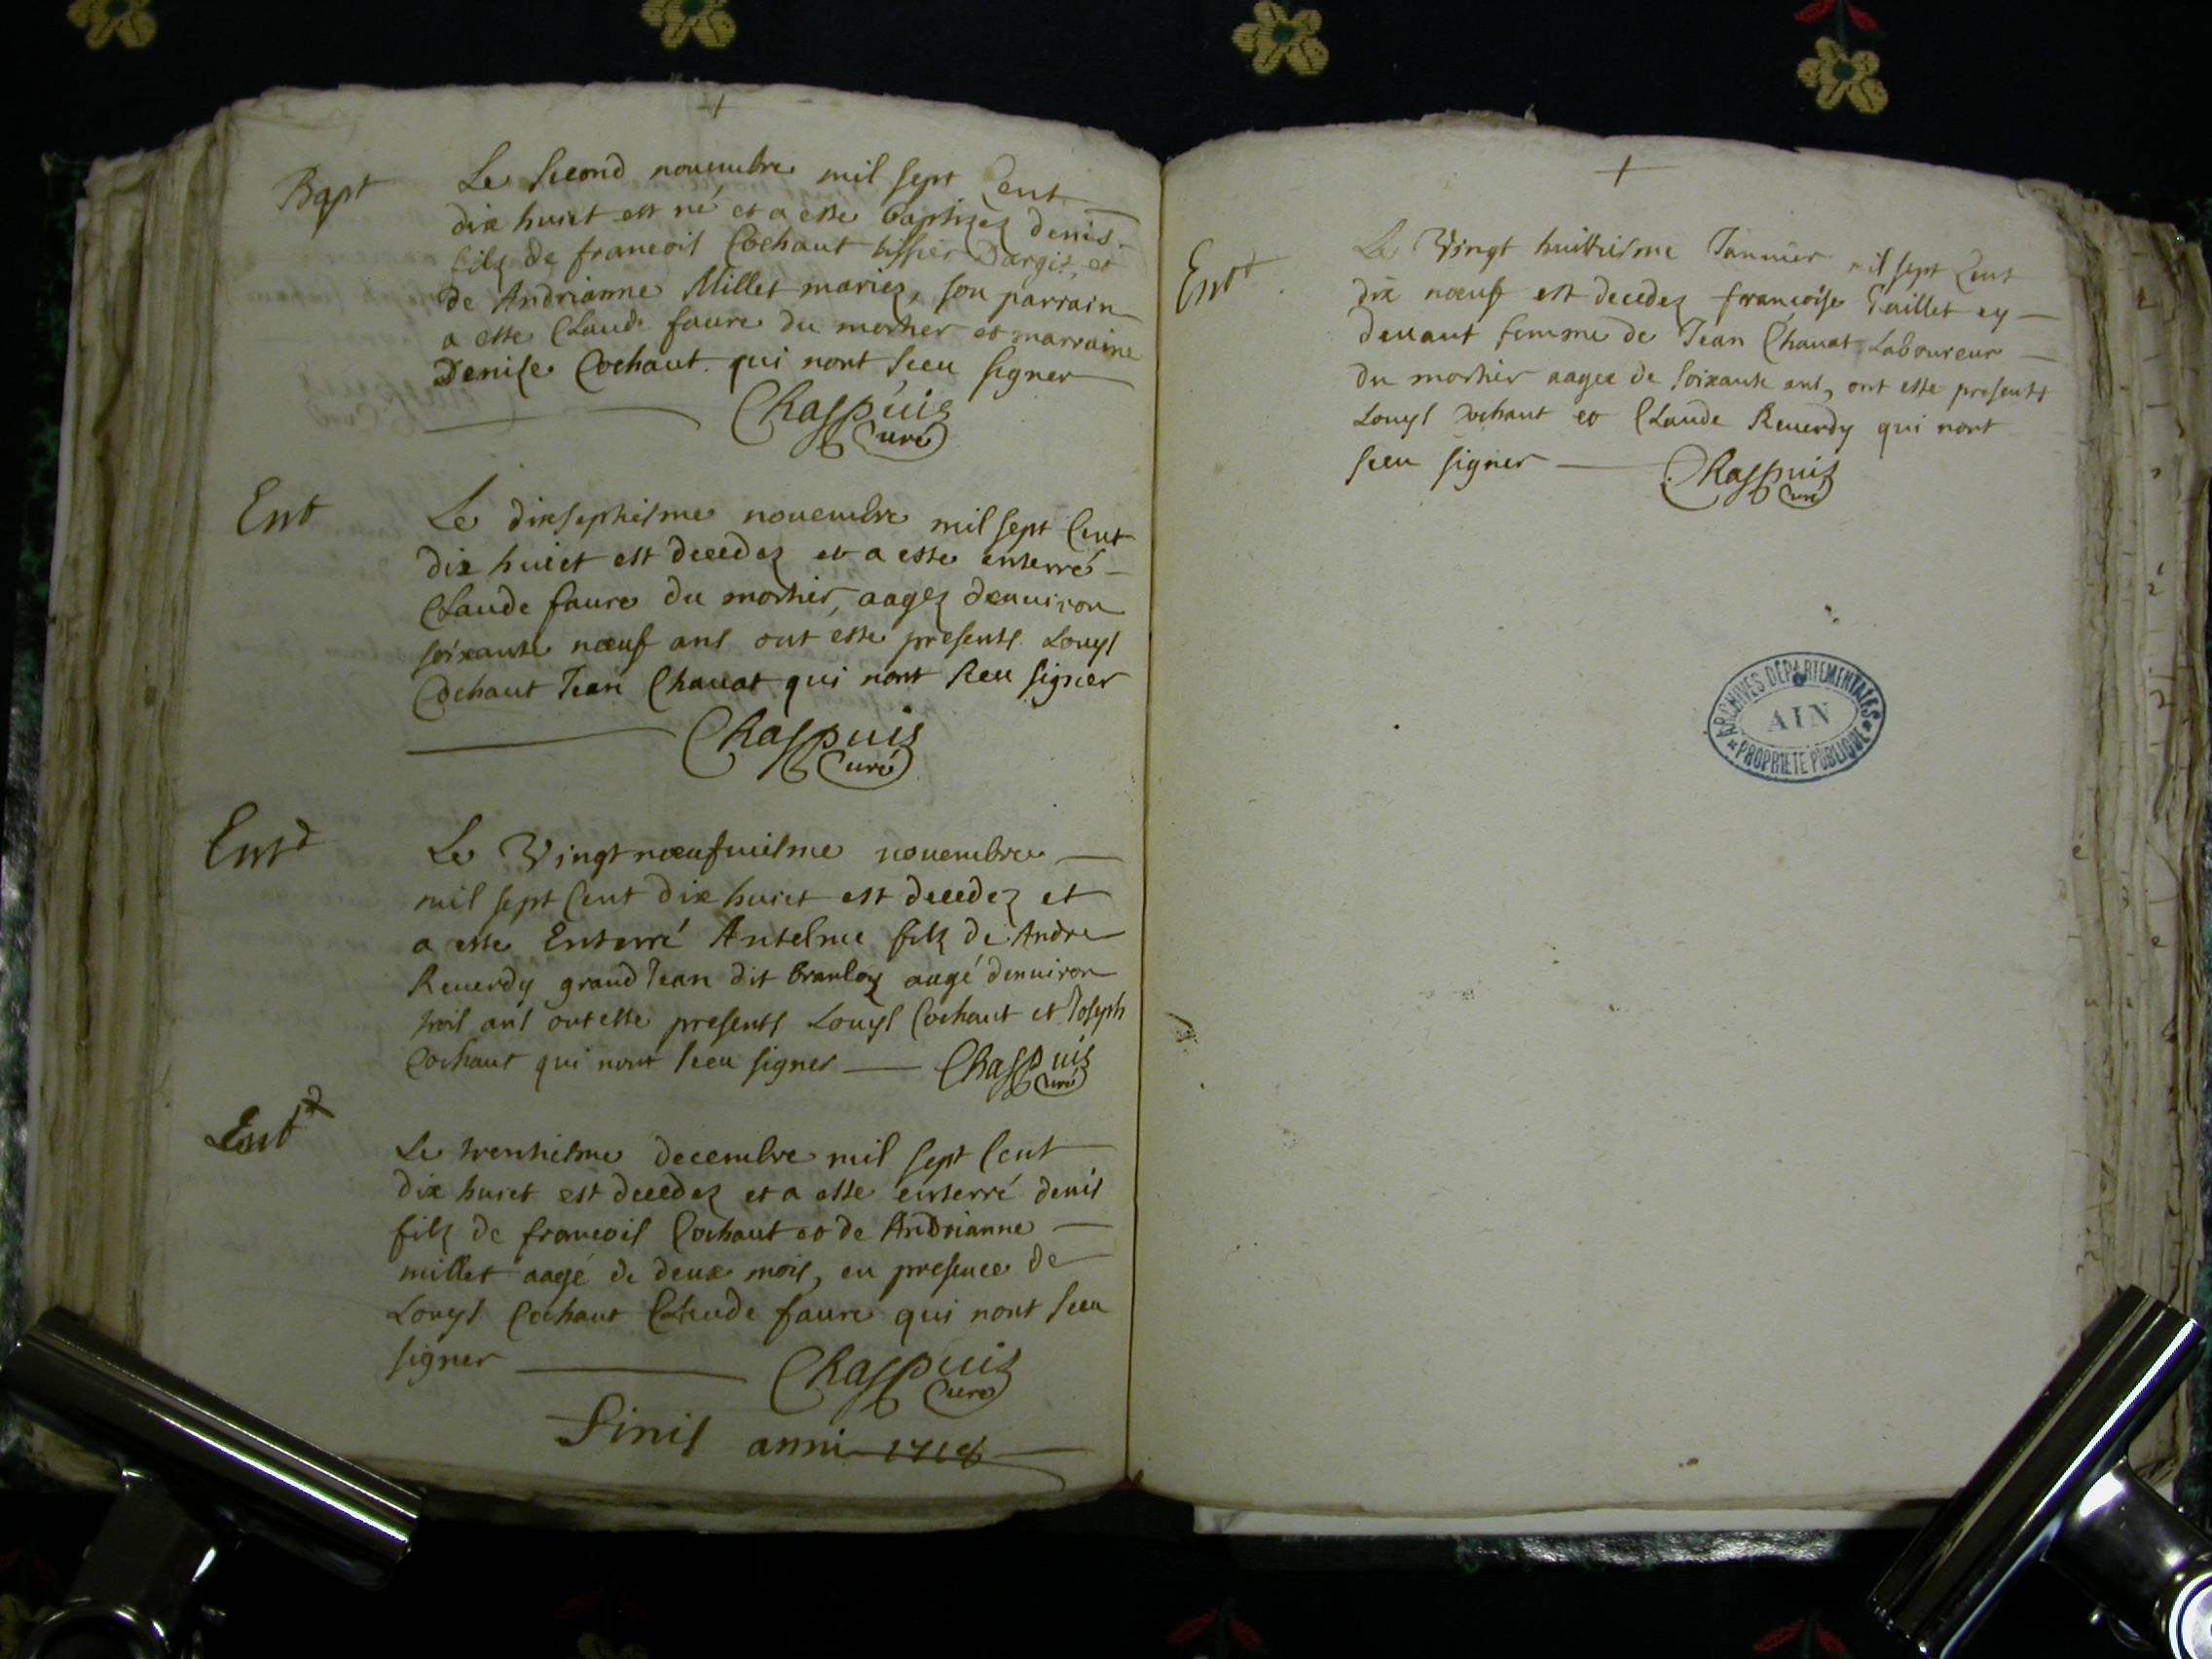 +
Bapt
Le second novembre mil sept Cent
dix huict est né et a este baptizez denis
filz de francois Cochaut tissier Dargis, et
de Andrianne Millet mariez, son parrain
a este Claude faure du mortier et marraine
Denise Cochaut qui nont sceu signer
Chappuis
Curé
Ent
Le dixseptiesme novembre mil sept Cent
dix huict est decedez et a esté enterré
Claude faure du mortier, aagez denuiron
soixante nœuf ans ont esté presents Louys
Cochaut Jean Chauat qui nont sceu signer
Chappuis
Curé
Ent
Le Vingt nœufuiesme nouembre
mil sept Cent dix huict est decedez et
a este Enterré Antelme filz de Andre
Reuerdy grand Jean dit branloz aagé denuiron
trois ans ont este presents Louys Cochaut et Joseph
Cochaut qui nont sceu signer Chappuis
Curé
Ent
Le trentiesme decembre mil sept Cent
dix huict est decedez et a este enterré denis
filz de francois Cochaut et de Andrianne
millet aagé de deux mois, en presence de
Louys Cochaut Claude faure qui nont sceu
signer Chappuis
Curé
Finis anni 1718
+
Ent
Le Vingt huittiesme Januier mil sept Cent
dix nœuf est decedez francoise Taillet cy
deuant femme de Jean Chauat Laboureur
du mortier aagee de soixante ans, ont este presents
Louys Cochaut et Claude Reuerdy qui nont
sceu signer Chappuis
Curé
ARCHIVES DEPARTEMENTALES
AIN
PROPRIETE PUBLIQUE